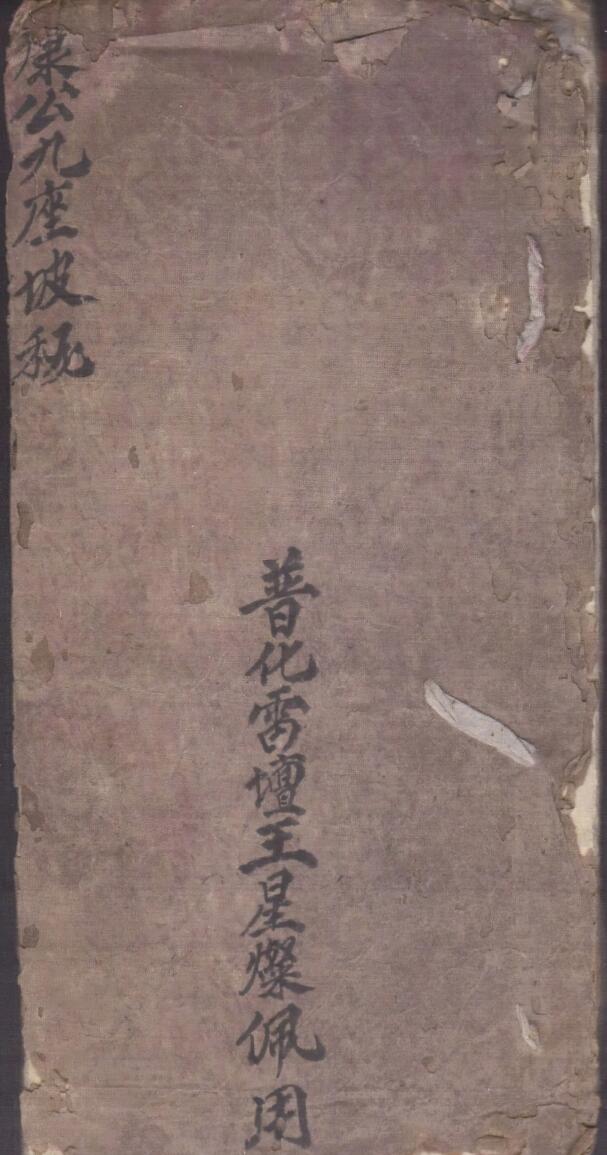 康公九座坡秘
普化雷壇王星燦佩用